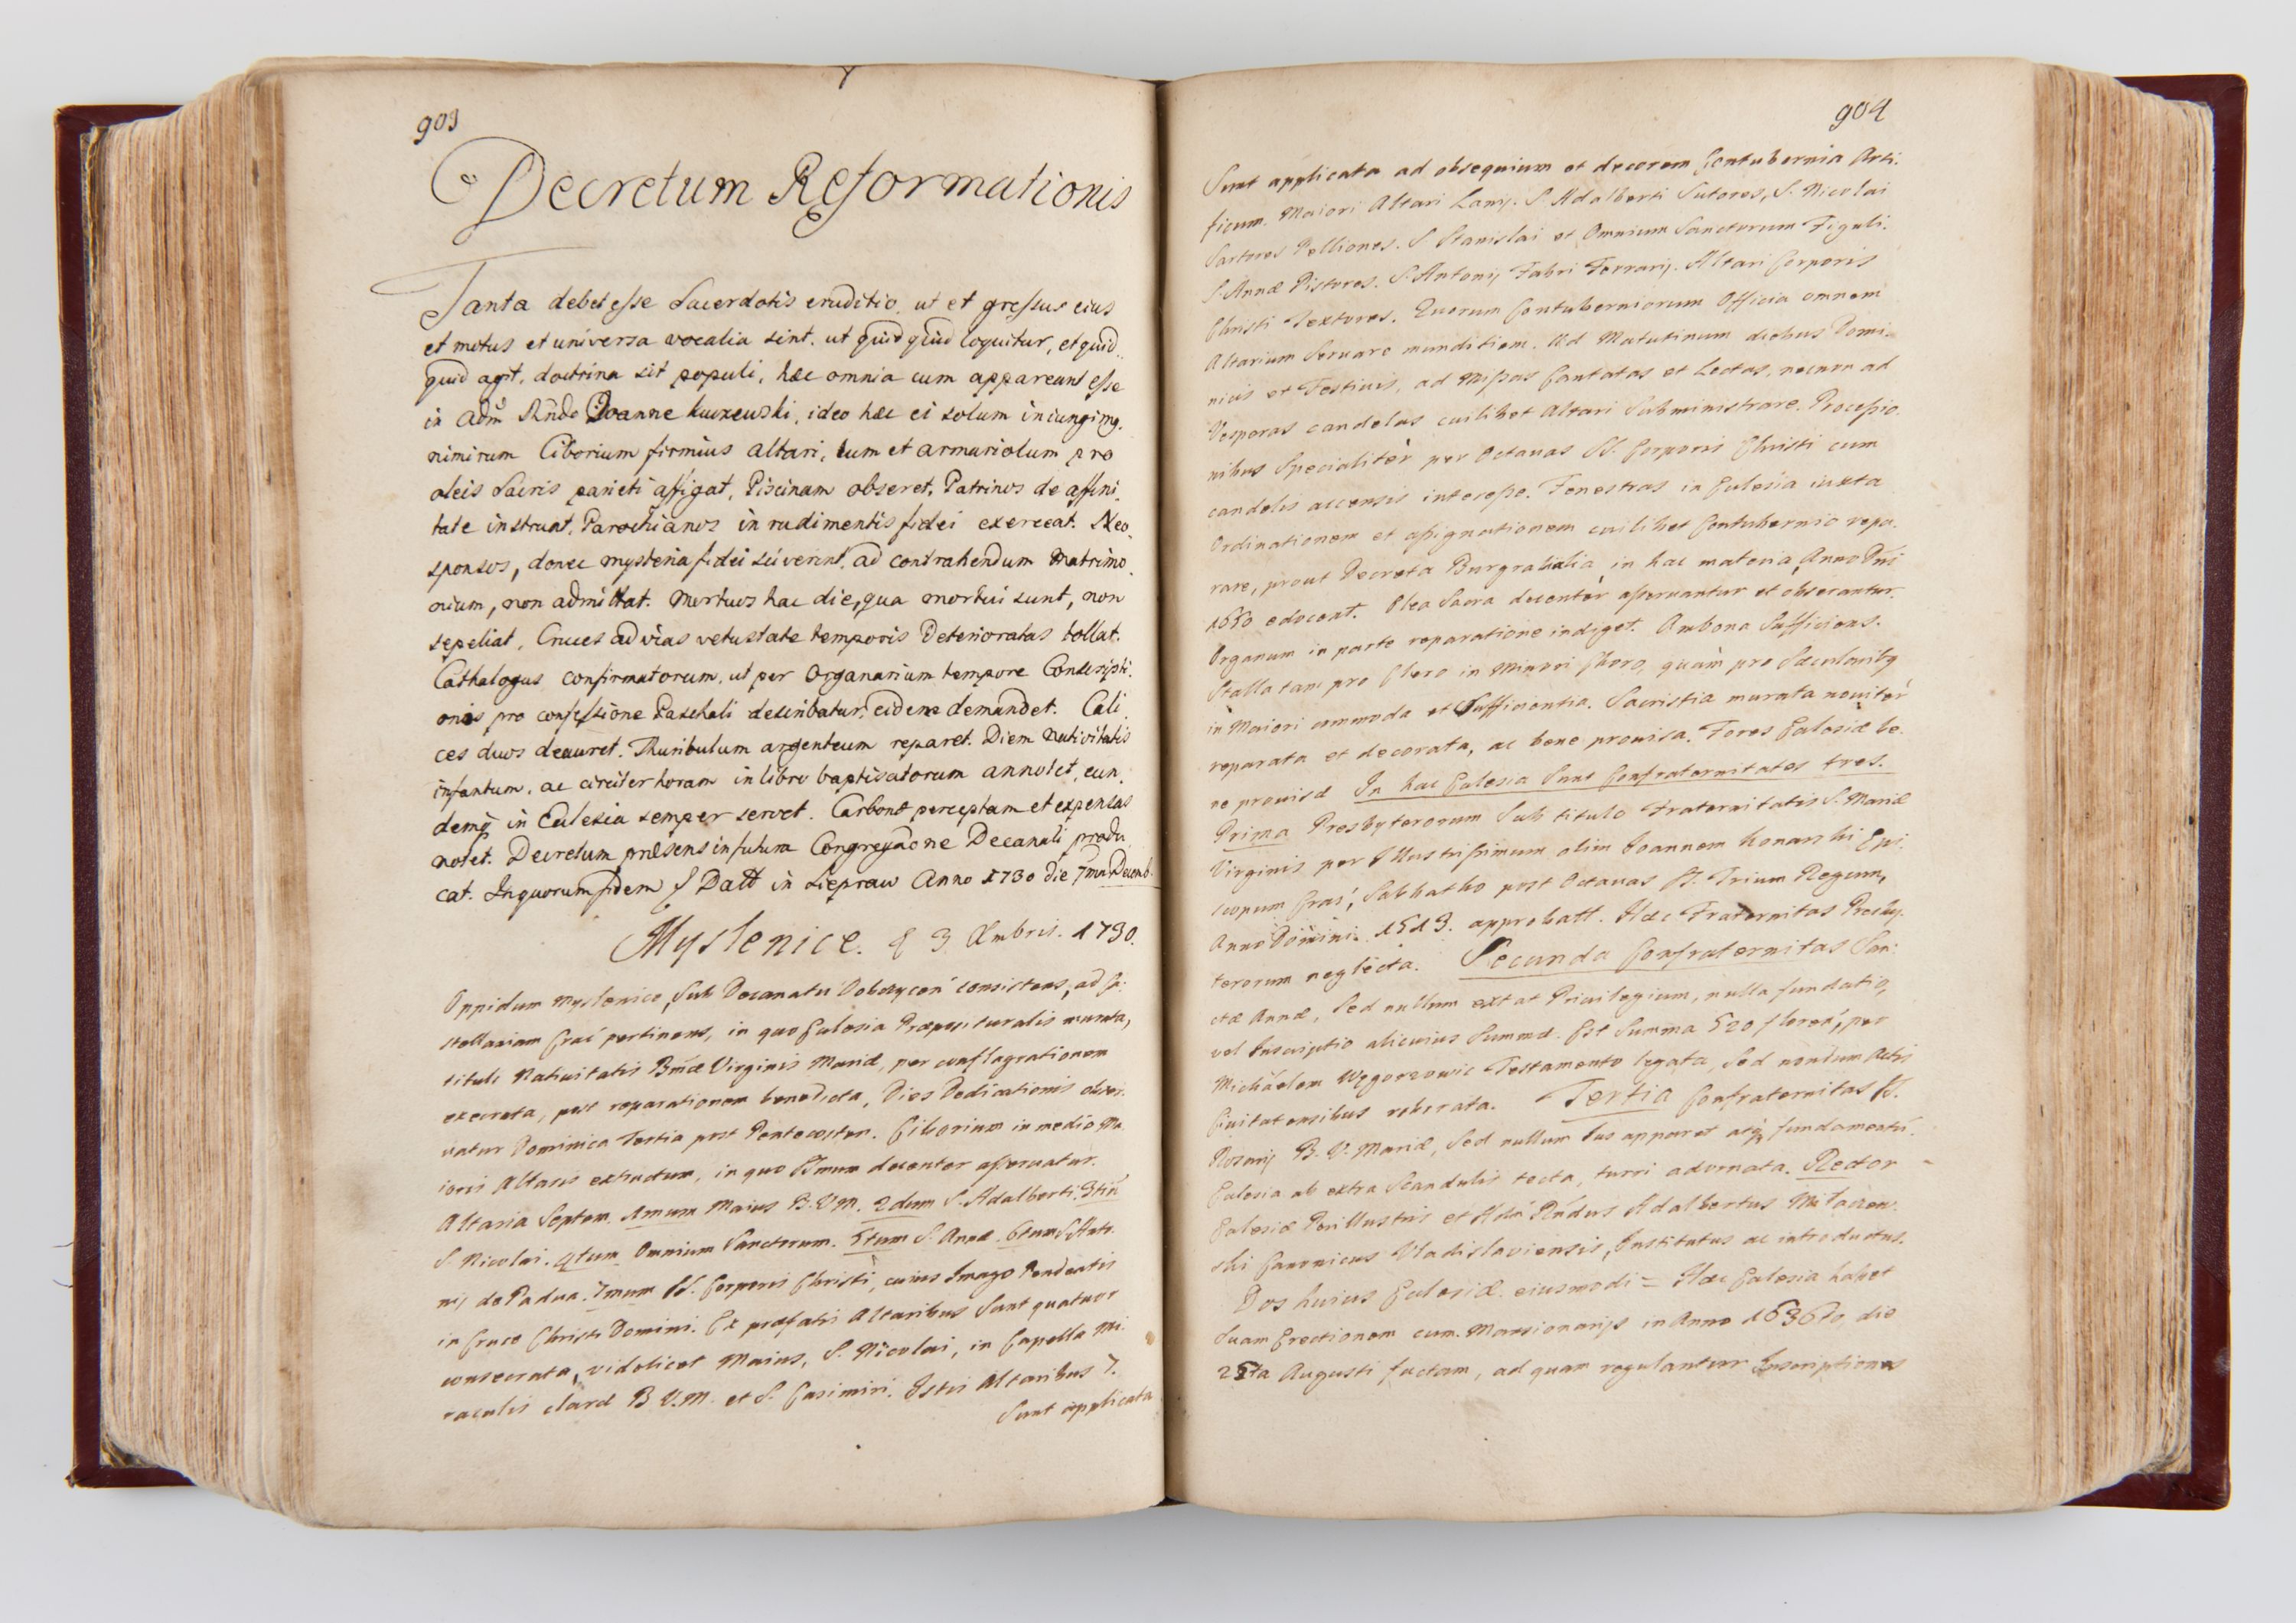 903
Decretum Reformationis
Tanta debet esse Sacerdotis eruditio, ut et gressus eius
et motus et universa vocalia sint. ut quidquid loquitur, et quid-
quid agit, doctrina sit populi, hæc omnia cum appareant esse
in Adm Rndo Joanne kurzewski, ideo hæc ei solum iniungimg.
nimirum Ciborium firmius altari, tum et armariolum pro
oleis Sacris parieti affigat, Piscinam obseret, Patrinos de affini-
tate instruat. Parochianos in rudimentis fidei exerceat. Neo-
sponsos, donec mysteria fidei sciverint, ad contrahendum Matrimo-
nium, non admittat. Mortuos hac die, qua mortui sunt, non
sepeliat. Cruces ad vias vetustate temporis Deterioratas tollat.
Cathalogus confirmatorum, ut per Organarium tempore Conscripti-
onis pro confessione Paschali describatur, eidem demandet. Cali-
ces duos deauret. Thuribulum argenteum reparet. Diem Nativitatis
infantum, ac circiter horam in libro baptisatorum annotet, eun-
demq in Eclesia semper servet. Carbonæ perceptam et expensas
notet. Decretum præsens in futura Congregãone Decanali produ-
cat. In quorum fidem & Datt in Siepraw Anno 1730 die 7ma Decemb.
Myslenice. d 3 Xmbris. 1730.
Oppidum Myslenice, Sub Decanatu Dobczycen consistens, ad Ca-
stellaniam Crac pertinens, in quo Eclesia Præposituralis murata,
tituli Nativitatis Bmæ Virginis Mariæ, per conflagrationem
execrata, post reparationem benedicta, Dies Dedicationis obser-
vatur Dominica Tertia post Pentecosten. Ciborium in medio Ma-
ioris Altaris extructum, in quo SSmum decenter asservatur.
Altaria Septem. 1mum Maius B.V.M. 2dum S. Adalberti. 3tiu
S. Nicolai. 4tum Omnium Sanctorum. 5tum S. Annæ. 6tum S. Anto-
nij de Padua. 7mum SS. Corporis Christi, cuius Imago Pendentis
in Cruce Christi Domini. Ex præfatis Altaribus Sunt quatuor
consecrata, videlicet Maius, S. Nicolai, in Capella Mi-
raculis claræ B.V.M. et S. Casimiri. Istis Altaribus 7.
Sunt applicata
904
Sunt applicata ad obsequium et decorem Contubernia Arti-
ficum. Maiori Altari Lanij. S. Adalberti Sutores, S. Nicolai
Sartores Pelliones. S. Stanislai et Omnium Sanctorum Figuli.
S. Annæ Pistores. S. Antonij Fabri Ferrarij. Altari Corporis
Christi Textores. Quorum Contuberniorum Officia omnem
Altarium Servare munditiem. Ad Matutinum diebus Domi-
nicis et Festivis, ad Missas Cantatas et Lectas, necnon ad
Vesperas candelas cuilibet Altari Subministrare. Processio-
nibus Specialitèr per Octavas SS. Corporis Christi cum
candelis accensis interesse. Fenestras in Eclesia iuxta
Ordinationem et assignationem cuilibet Contubernio repa-
rare, prout Decreta Burgrabialia in hac materia Anno Dni
1650 edocent. Olea Sacra decentèr asservantur et obserantur.
Organum in parte reparatione indiget. Ambona Sufficiens.
Stalla tam pro Clero in Minori Choro, quàm pro Sæcularibg
in Maiori commoda et Sufficientia. Sacristia murata novitèr
reparata et decorata, ac bene provisa. Fores Eclesiæ be-
ne provisæ In hac Eclesia Sunt Confraternitates tres.
Prima Presbyterorum Sub titulo Fraternitatis S. Mariæ
Virginis per Illustrissimum olim Ioannem Konarski Epi-
scopum Crac, Sabbatho post Octavas SS. Trium Regum,
Anno Domini. 1513. approbatt. Hæc Fraternitas Presby-
terorum neglecta. Secunda Confraternitas San-
ctæ Annæ, Sed nullum extat Privilegium, nulla fundatio,
vel Inscriptio alicuius Summæ. Est Summa 520 floren, per
Michaelem Węgorzowic Testamento legata, Sed nondum Actis
Civitatensibus roborata. Tertia Confraternitas SS.
Rosarij B.V. Mariæ, Sed nullum Ius apparet atq fundamentu.
Eclesia ab extra Scandulis tecta, turri adornata. Rector
Eclesiæ Perillustris et Adm Rndus Adalbertus
ski Canonicus Vladislaviensis, Institutus ac introductus.
Dos huius Eclesiæ eiusmodi = Hæc Eclesia habet
Suam Erectionem cum Mansionarijs in Anno 1636to, die
25ta Augusti factam, ad quam regulantur Inscriptiones